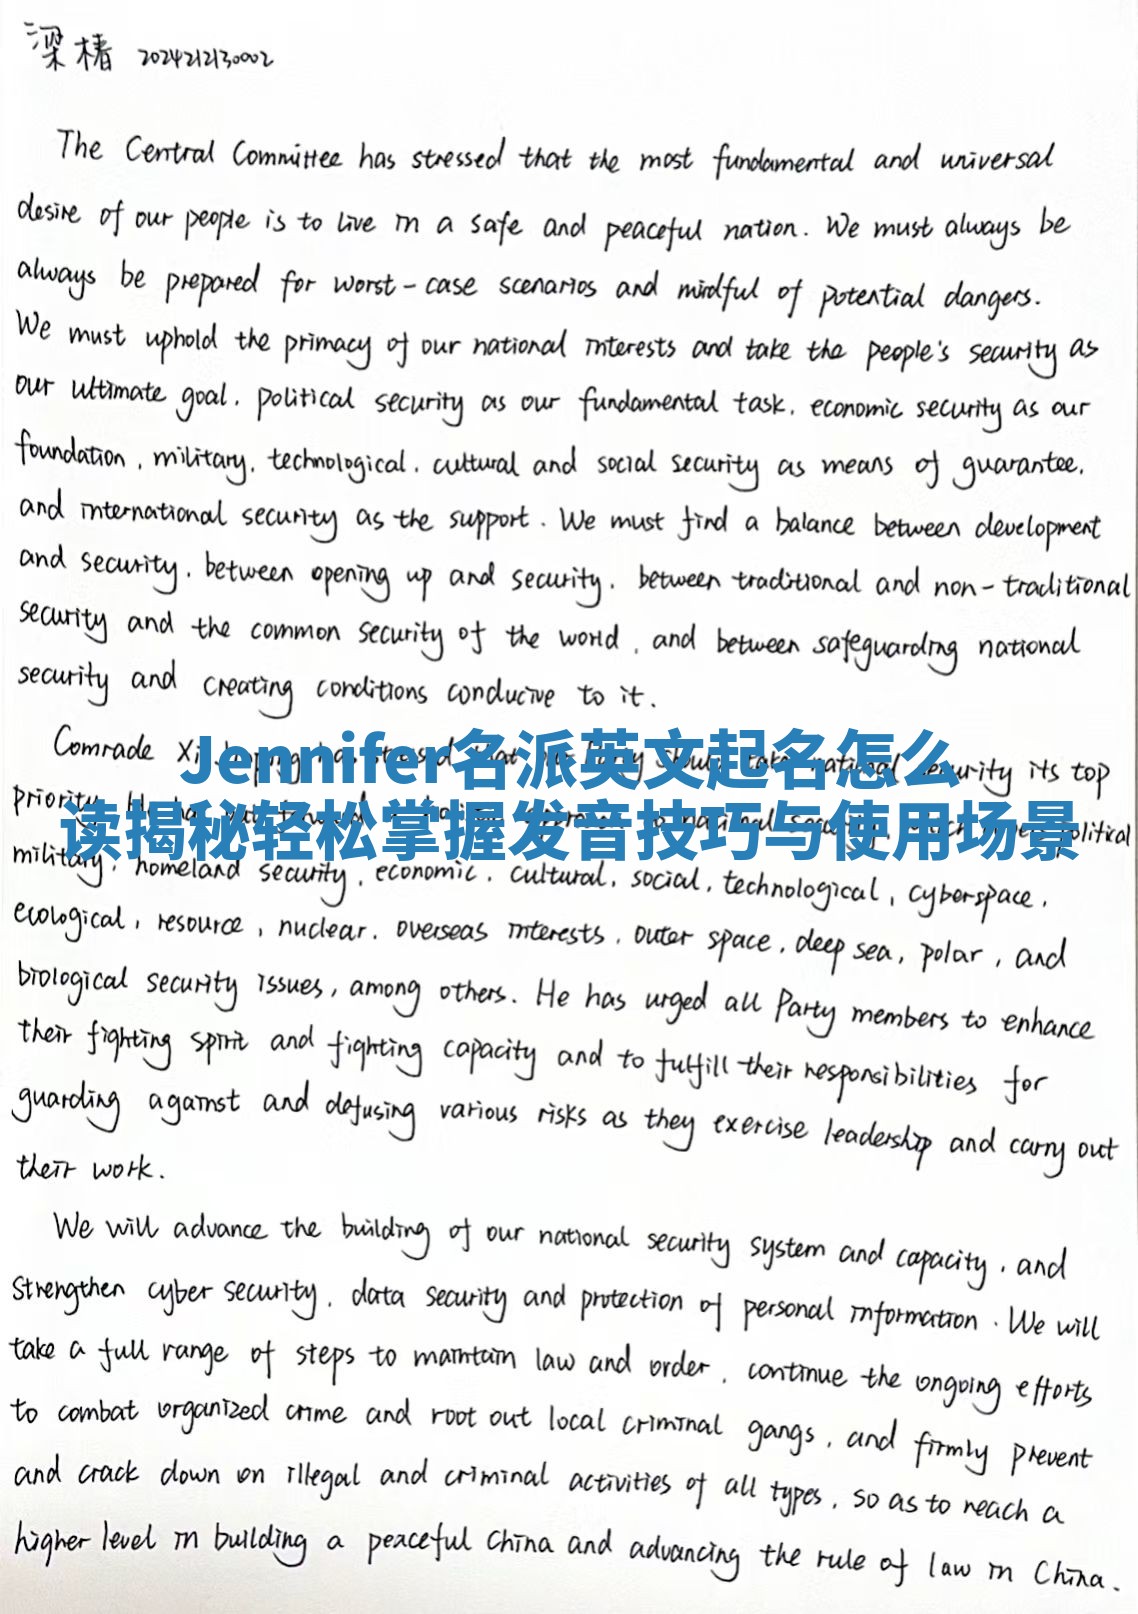 梁椿 2024212130002
The Central Committee has stressed that the most fundamental and universal
desire of our people is to live in a safe and peaceful nation. We must always be
always be prepared for worst-case scenarios and mindful of potential dangers.
We must uphold the primacy of our national interests and take the people's security as
our ultimate goal, political security as our fundamental task, economic security as our
foundation, military, technological, cultural and social security as means of guarantee,
and international security as the support. We must find a balance between development
and security, between opening up and security, between traditional and non-traditional
security and the common security of the world, and between safeguarding national
security and creating conditions conducive to it.
Comrade Xi Jinping has stressed that the Party should take national security its top
Jennifer名派英文起名怎么
priority. national security, political
读揭秘轻松掌握发音技巧与使用场景
military, homeland security, economic, cultural, social, technological, cyberspace,
ecological, resource, nuclear, overseas interests, outer space, deep sea, polar, and
biological security issues, among others. He has urged all Party members to enhance
their fighting spirit and fighting capacity and to fulfill their responsibilities for
guarding against and defusing various risks as they exercise leadership and carry out
their work.
We will advance the building of our national security system and capacity, and
strengthen cyber security, data security and protection of personal information. We will
take a full range of steps to maintain law and order, continue the ongoing efforts
to combat organized crime and root out local criminal gangs, and firmly prevent
and crack down on illegal and criminal activities of all types, so as to reach a
higher level in building a peaceful China and advancing the rule of law in China.